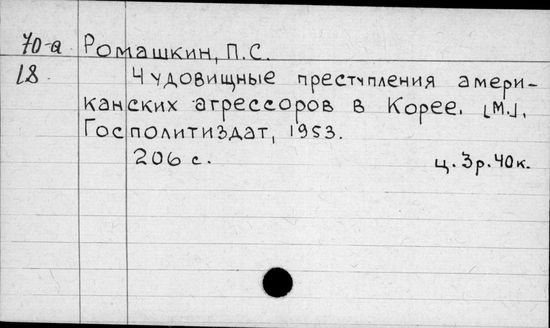 70-а Ромашкин, П.С.
18 Чудовищные преступления амери-
канских агрессоров в Корее. [М.],
Госполитиздат, 1953.
206 с. ц. 3р.40к.